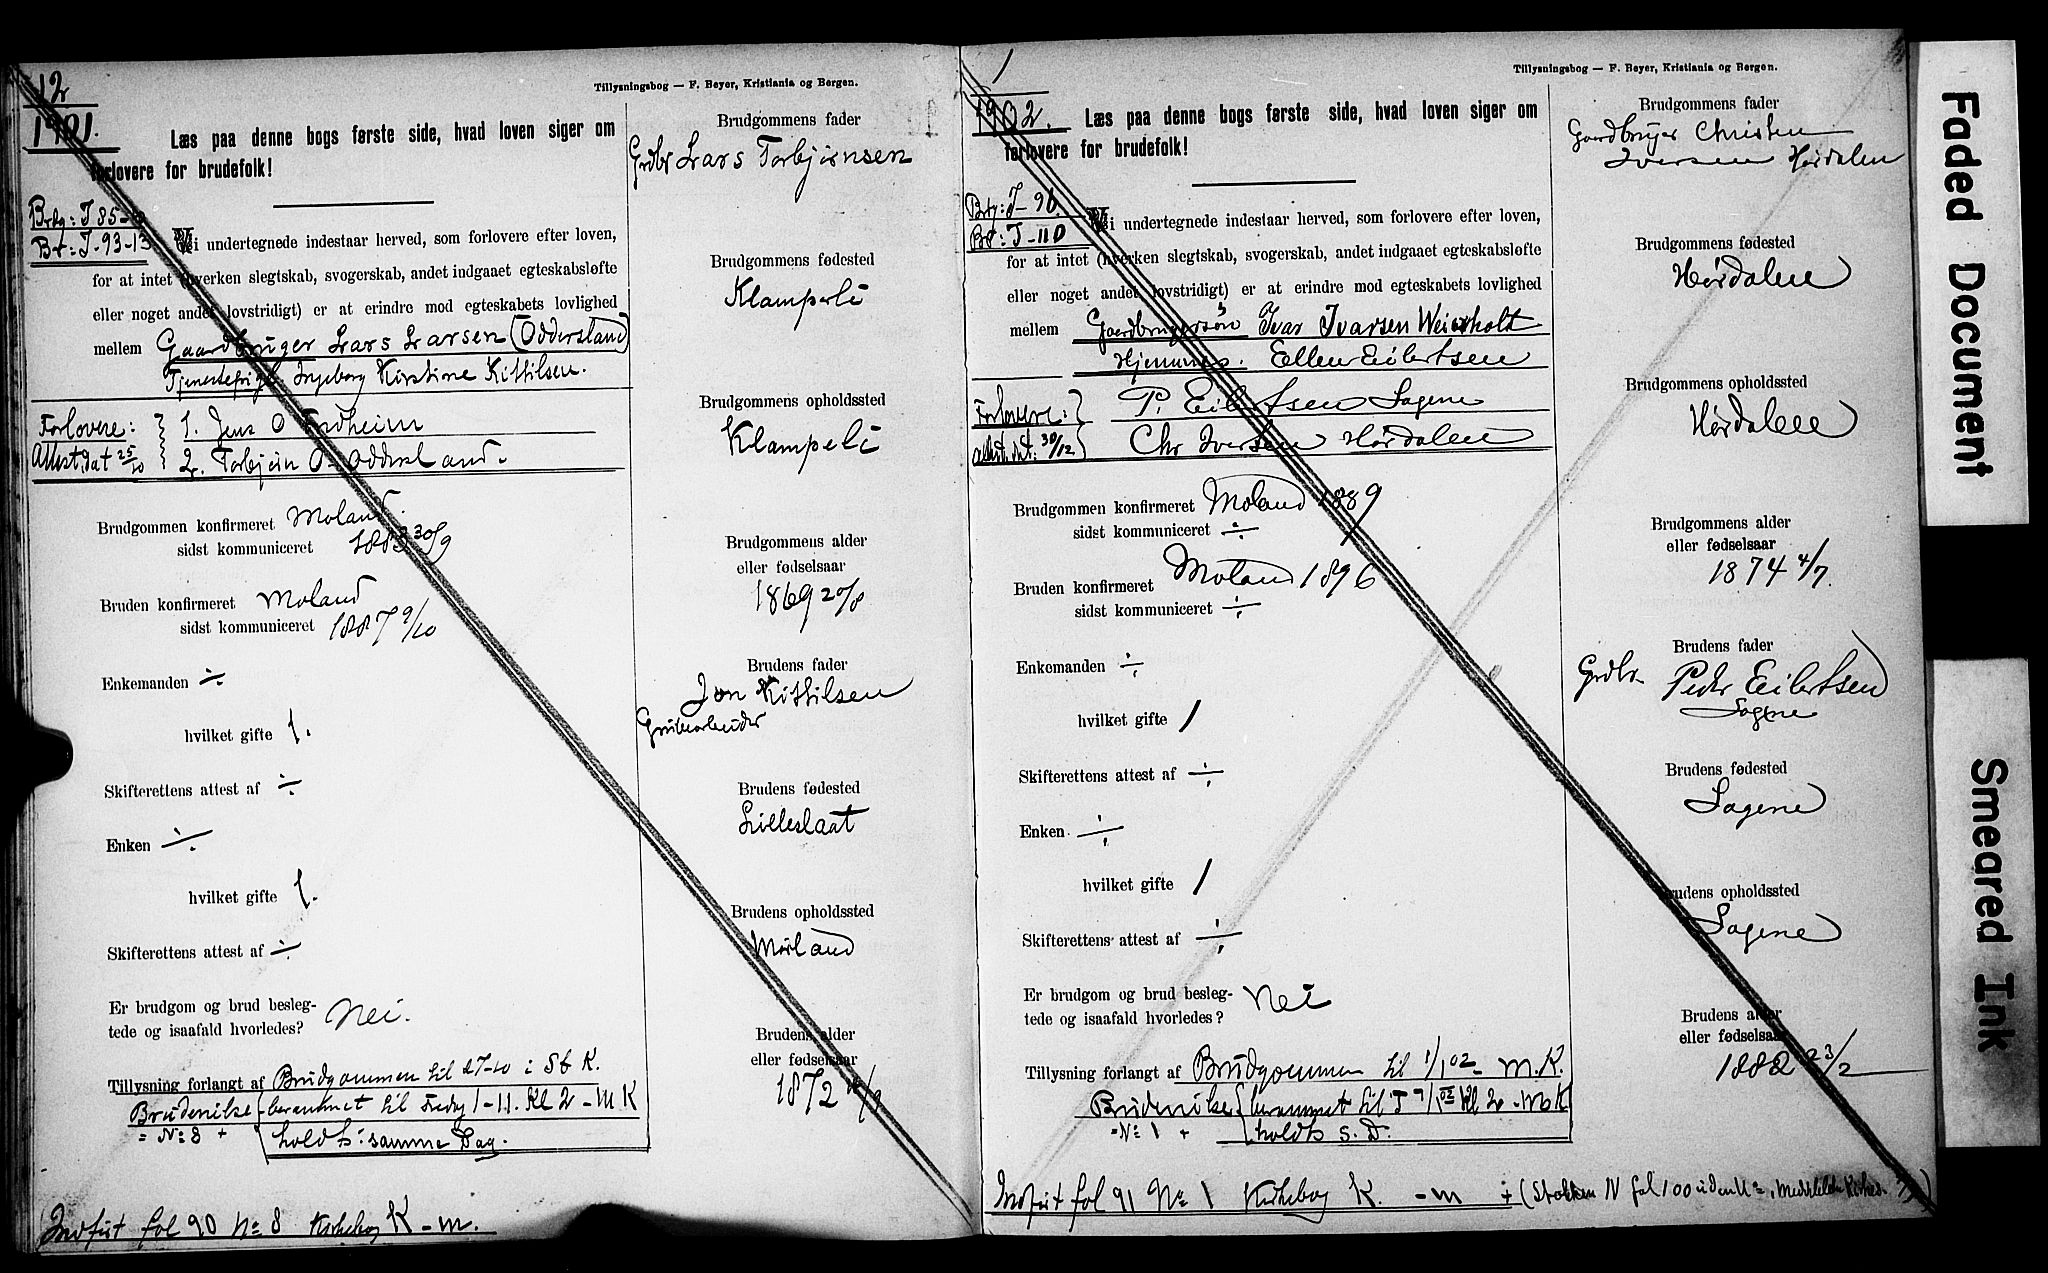 12
1901.
Tillysningsbog — F. Beyer, Kristiania og Bergen.
Læs paa denne bogs første side, hvad loven siger om
forlovere for brudefolk!
Brdg: I 85-
Br: I-93-13
Vi undertegnede indestaar herved, som forlovere efter loven,
for at intet (hverken slegtskab, svogerskab, andet indgaaet egteskabsløfte
eller noget andet lovstridigt) er at erindre mod egteskabets lovlighed
mellem Gaardbruger Lars Larsen (Oddersland)
Tjenestepige Ingeborg Kirstine Kittilsen.
Forlovere: 1. Jens O Trdheim
Attest. dat 25/10 2. Torbjørn O. Oddersland.
Brudgommen konfirmeret Moland
sidst kommuniceret 1883 30/9
Bruden konfirmeret Moland
sidst kommuniceret 1887 9/10
Enkemanden ÷
hvilket gifte 1.
Skifterettens attest af ÷
Enken ÷
hvilket gifte 1.
Skifterettens attest af ÷
Er brudgom og brud besleg-
tede og isaafald hvorledes? Nei.
Tillysning forlangt af Brudgommen til 27-10 i St K.
Brudevielse berammet til Fredag 1-11. Kl 2 - M K
= No: 8 + holdts: samme Dag.
Indført fol 90 No: 8 Kirkebog K - m.
Brudgommens fader
Grdbr Lars Torbjørnsen
Brudgommens fødested
Klampeli
Brudgommens opholdssted
Klampeli
Brudgommens alder
eller fødselsaar
1869 20/8
Brudens fader
Jon Kittilsen
Grubearbeider
Brudens fødested
Lilleslaat
Brudens opholdssted
Mørland
Brudens alder
eller fødselsaar
1872
1
1902.
Tillysningsbog — F. Beyer, Kristiania og Bergen.
Læs paa denne bogs første side, hvad loven siger om
forlovere for brudefolk!
Brdg: I-96
Br: I-110
Vi undertegnede indestaar herved, som forlovere efter loven,
for at intet (hverken slegtskab, svogerskab, andet indgaaet egteskabsløfte
eller noget andet lovstridigt) er at erindre mod egteskabets lovlighed
mellem Gaardbrugersøn Ivar Ivarsen Weierholt
Hjemmev. Ellen Eilertsen
Forlovere: P. Eilertsen Sagene
attest. dat: 30/12 Chr Iversen Hørdalen
Brudgommen konfirmeret Moland 1889
sidst kommuniceret ÷
Bruden konfirmeret Moland 1896
sidst kommuniceret ÷
Enkemanden ÷
hvilket gifte 1
Skifterettens attest af ÷
Enken ÷
hvilket gifte 1
Skifterettens attest af ÷
Er brudgom og brud besleg-
tede og isaafald hvorledes? Nei
Tillysning forlangt af Brudgommen til 1/1 02 - M.K.
Brudevielse berammet til T 7/1 02 Kl 2 - M K
= No: 1 + holdts s. D.
Indført fol 91 No: 1 Kirkebog K. - m + (Stokken N fol 100 uden No:,
Brudgommens fader
Gaardbruger Christen
Iversen Hørdalen
Brudgommens fødested
Hørdalen
Brudgommens opholdssted
Hørdalen
Brudgommens alder
eller fødselsaar
1874 4/7.
Brudens fader
Grdbr Peder Eilertsen
Sagene
Brudens fødested
Sagene
Brudens opholdssted
Sagene
Brudens alder
eller fødselsaar
1882 23/2
Faded Document
Smeared Ink